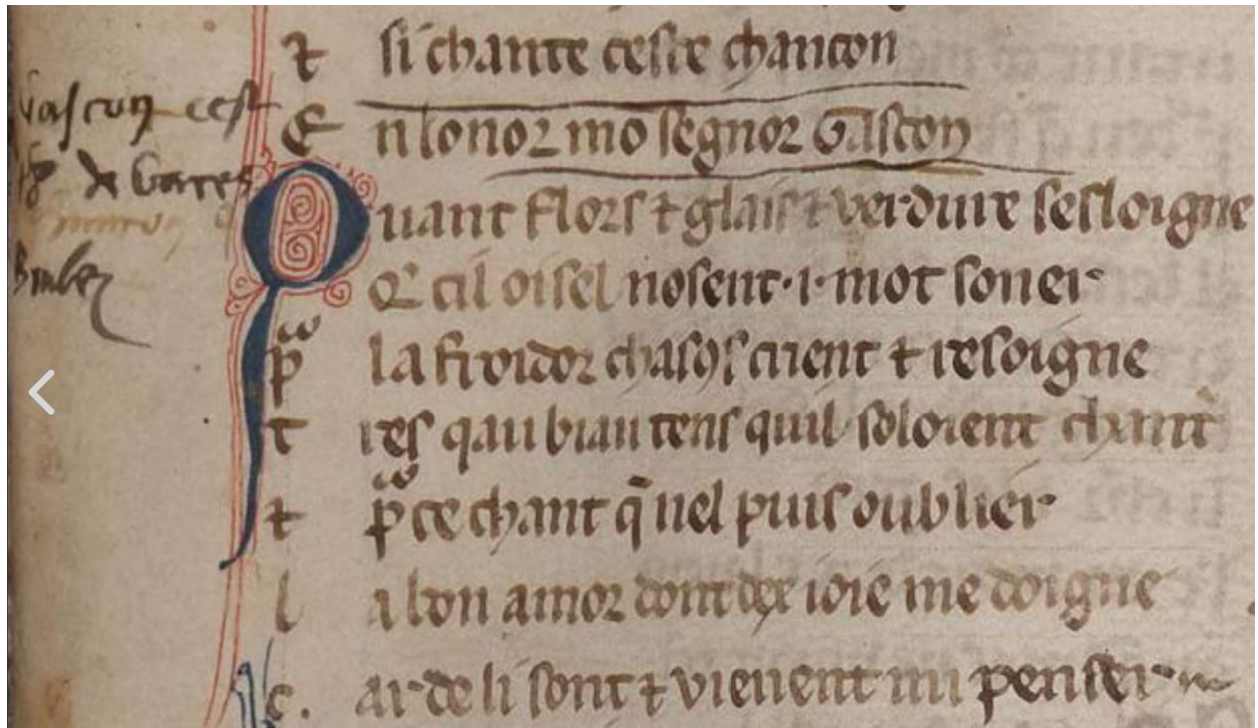 ⁊ si chante ceste chancon
E nlonor mo segnor Gascon
Gascon cest
de Gaces
Brulez
Quant flors ⁊ glais ⁊ verdure sesloigne
Q̃ cil oisel nosent ·i· mot soner
pͣ la froidor chasꝯs crient ⁊ resoigne
t res qau biau tens quil soloient chant̉
⁊ pͣ ce chant q̄ nel puis oublier
l a bon amor dont dex ioie me doigne
c. ar de li sont ⁊ vienent mi penser